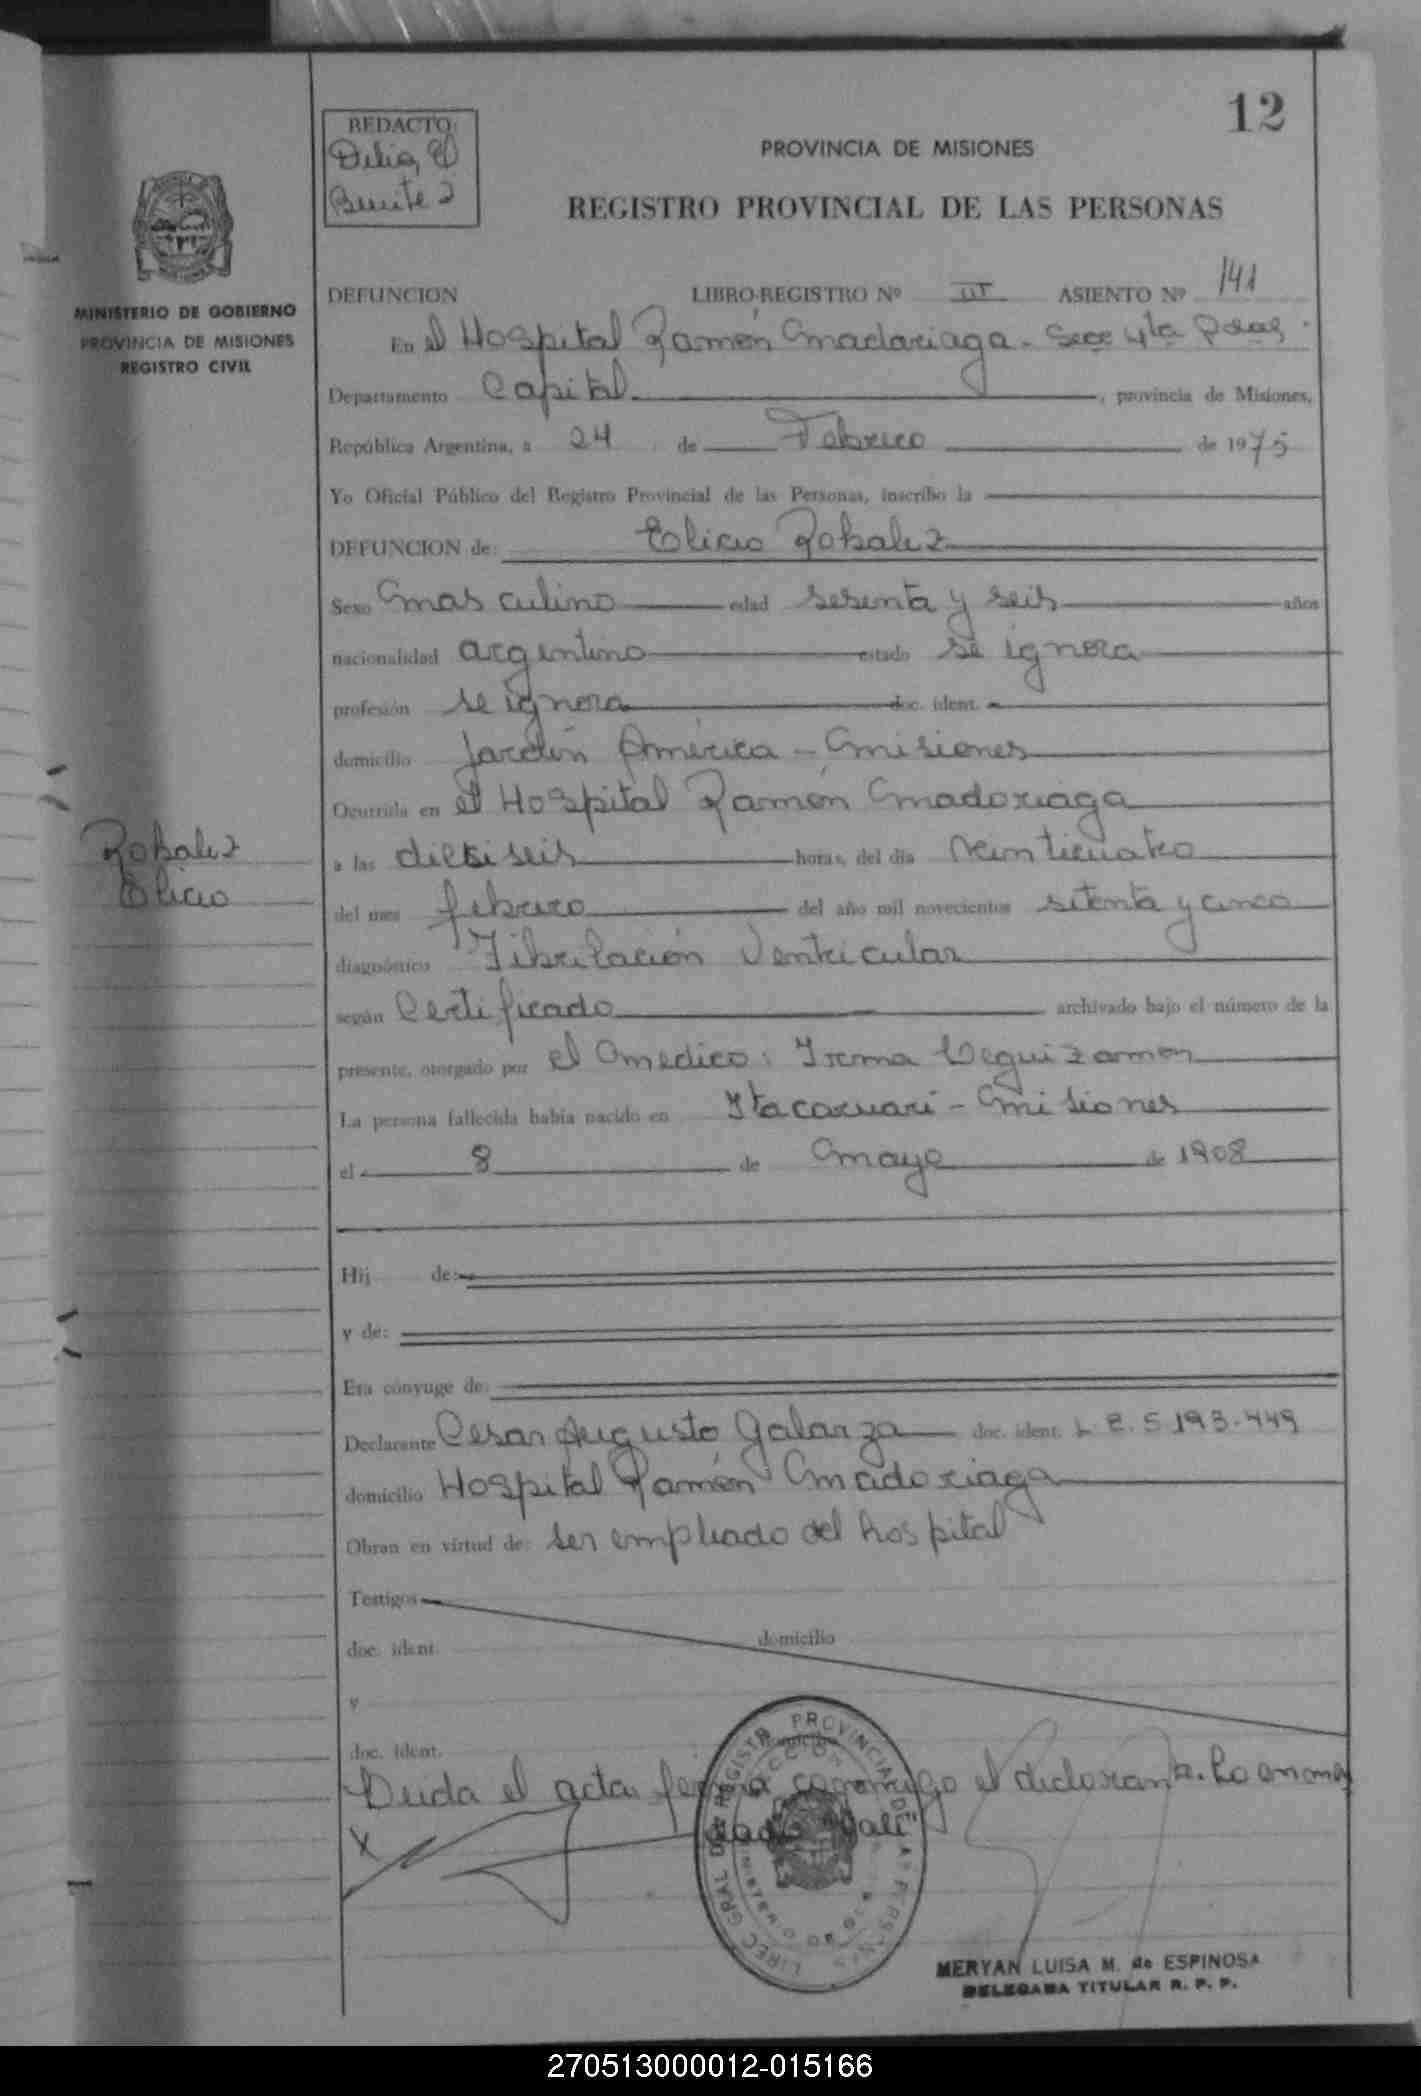 12
REDACTO:
Delia E
Benitez
PROVINCIA DE MISIONES
REGISTRO PROVINCIAL DE LAS PERSONAS
MINISTERIO DE GOBIERNO
PROVINCIA DE MISIONES
REGISTRO CIVIL
DEFUNCION LIBRO-REGISTRO Nº III ASIENTO Nº 141
En el Hospital Ramón Madariaga - Secc 4ta Pdas.
Departamento Capital, provincia de Misiones,
República Argentina, a 24 de Febrero de 1975
Yo Oficial Público del Registro Provincial de las Personas, inscribo la
DEFUNCION de: Elicio Robalez
Sexo Masculino edad sesenta y seis años
nacionalidad argentino estado se ignora
profesión se ignora doc. ident.
domicilio Jardín América - Misiones
Ocurrida en el Hospital Ramón Madariaga
Robalez
Elicio
a las dieciseis horas, del día veinticuatro
del mes febrero del año mil novecientos setenta y cinco
diagnóstico Fibrilación Ventricular
según Certificado archivado bajo el número de la
presente, otorgado por el Medico: Irma Leguizamon
La persona fallecida había nacido en Itacaruaré - Misiones
el 8 de Mayo de 1908
Hij de:
y de:
Era cónyuge de:
Declarante Cesar Augusto Galarza doc. ident. L E. 5.193.449
domicilio Hospital Ramón Madariaga
Obran en virtud de: ser empleado del hospital
Testigos
doc. ident. domicilio
y
doc. ident. domicilio
Leida el acta, firma conmigo el declarante. Lo enmen
dado "Vale"
X
DIREC. GRAL. DEL REGISTRO PROVINCIAL DE LAS PERSONAS
MERYAN LUISA M. de ESPINOSA
DELEGADA TITULAR R. P. P.
270513000012-015166